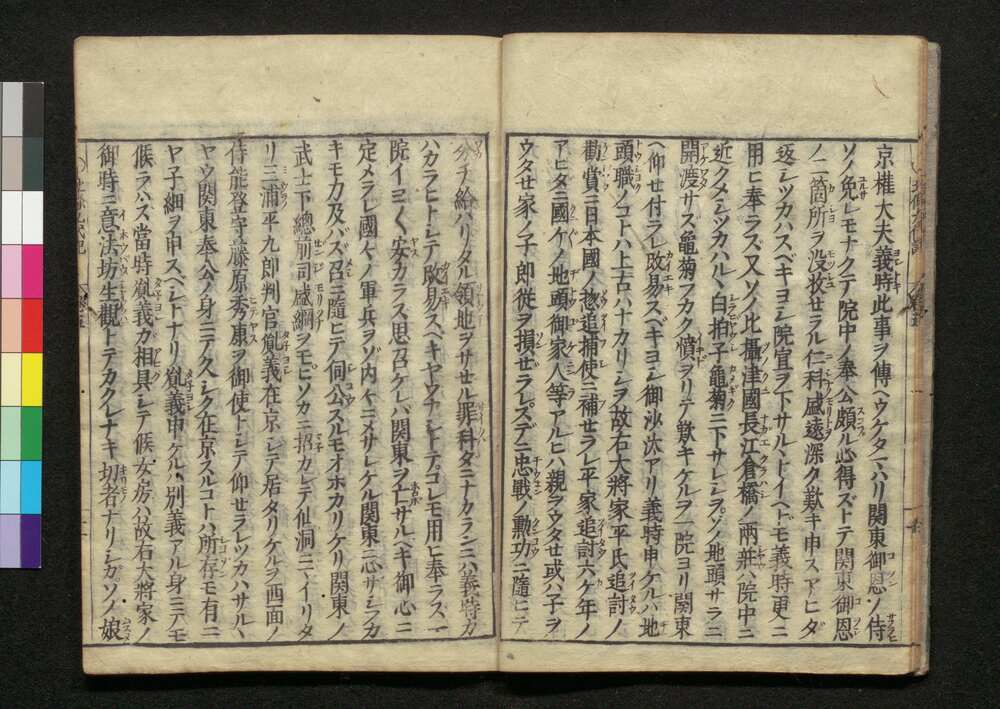 京権大夫義時此事ヲ傳ヘウケタマハリ関東御恩ノ侍
ソノ免レモナクテ院中ノ奉公頗ル心得ズトテ関東御恩
ノ二箇所ヲ没收セラル仁科盛遠深ク歎キ申スアヒダ
返シツカハスベキヨシ院宣ヲ下サルトイヘドモ義時更ニ
用ヒ奉ラズ又ソノ比攝津國長江倉橋ノ両莊ハ院中ニ
近クメシツカハルヽ白拍子亀菊ニ下サレシヲソノ地頭サラニ
開渡サズ亀菊フカク憤ヲリテ歎キケルヲ一院ヨリ関東
ヘ仰セ付ラレ改易スベキヨシ御沙汰アリ義時申ケルハ地
頭職ノコトハ上古ハナカリシヲ故右大將家平氏追討ノ
勸賞ニ日本國ノ惣追捕使ニ補セラレ平家追討六ケ年ノ
アヒダニ國ケノ地頭御家人等アルヒハ親ヲウタセ或ハ子ヲ
ウタセ家ノ子郎從ヲ損セラレズデニ忠戰ノ勳功ニ隨ヒテ
分チ給ハリタル領地ヲサセル罪科ダニナカランニハ義時ガ
ハカラヒトシテ改易スベキヤウナシトテコレモ用ヒ奉ラズ一
院イヨ〱安カラズ思召ケレバ関東ヲ亡サルベキ御心ニ
定メラレ國々ノ軍兵ヲゾ内々ニメサレケル関東ニ心ザシフカ
キモ力及バズ召ニ隨ヒテ伺公スルモオホカリケリ関東ノ
武士下總前司盛綱ヲモヒソカニ招カレテ仙洞ニマイリタ
リ三浦平九郎判官胤義在京シテ居タリケルヲ西面ノ
侍能登守藤原秀康ヲ御使トシテ仰セラレツカハサルヽ
ヤウ関東奉公ノ身ニテ久シク在京スルコトハ所存モ有ニ
ヤ子細ヲ申スベシトナリ胤義申ケルハ別義アル身ニテモ
候ラハズ當時胤義ガ相具シテ候女房ハ故右大將家ノ
御時ニ意法坊生観トテカクレナキ切者ナリシガソノ娘